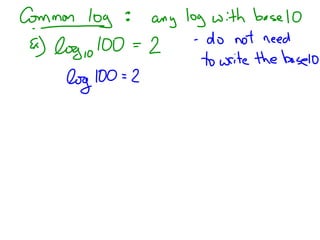 Common log : any log with base 10
Ex) log₁₀ 100 = 2
- do not need
to write the base 10
log 100 = 2